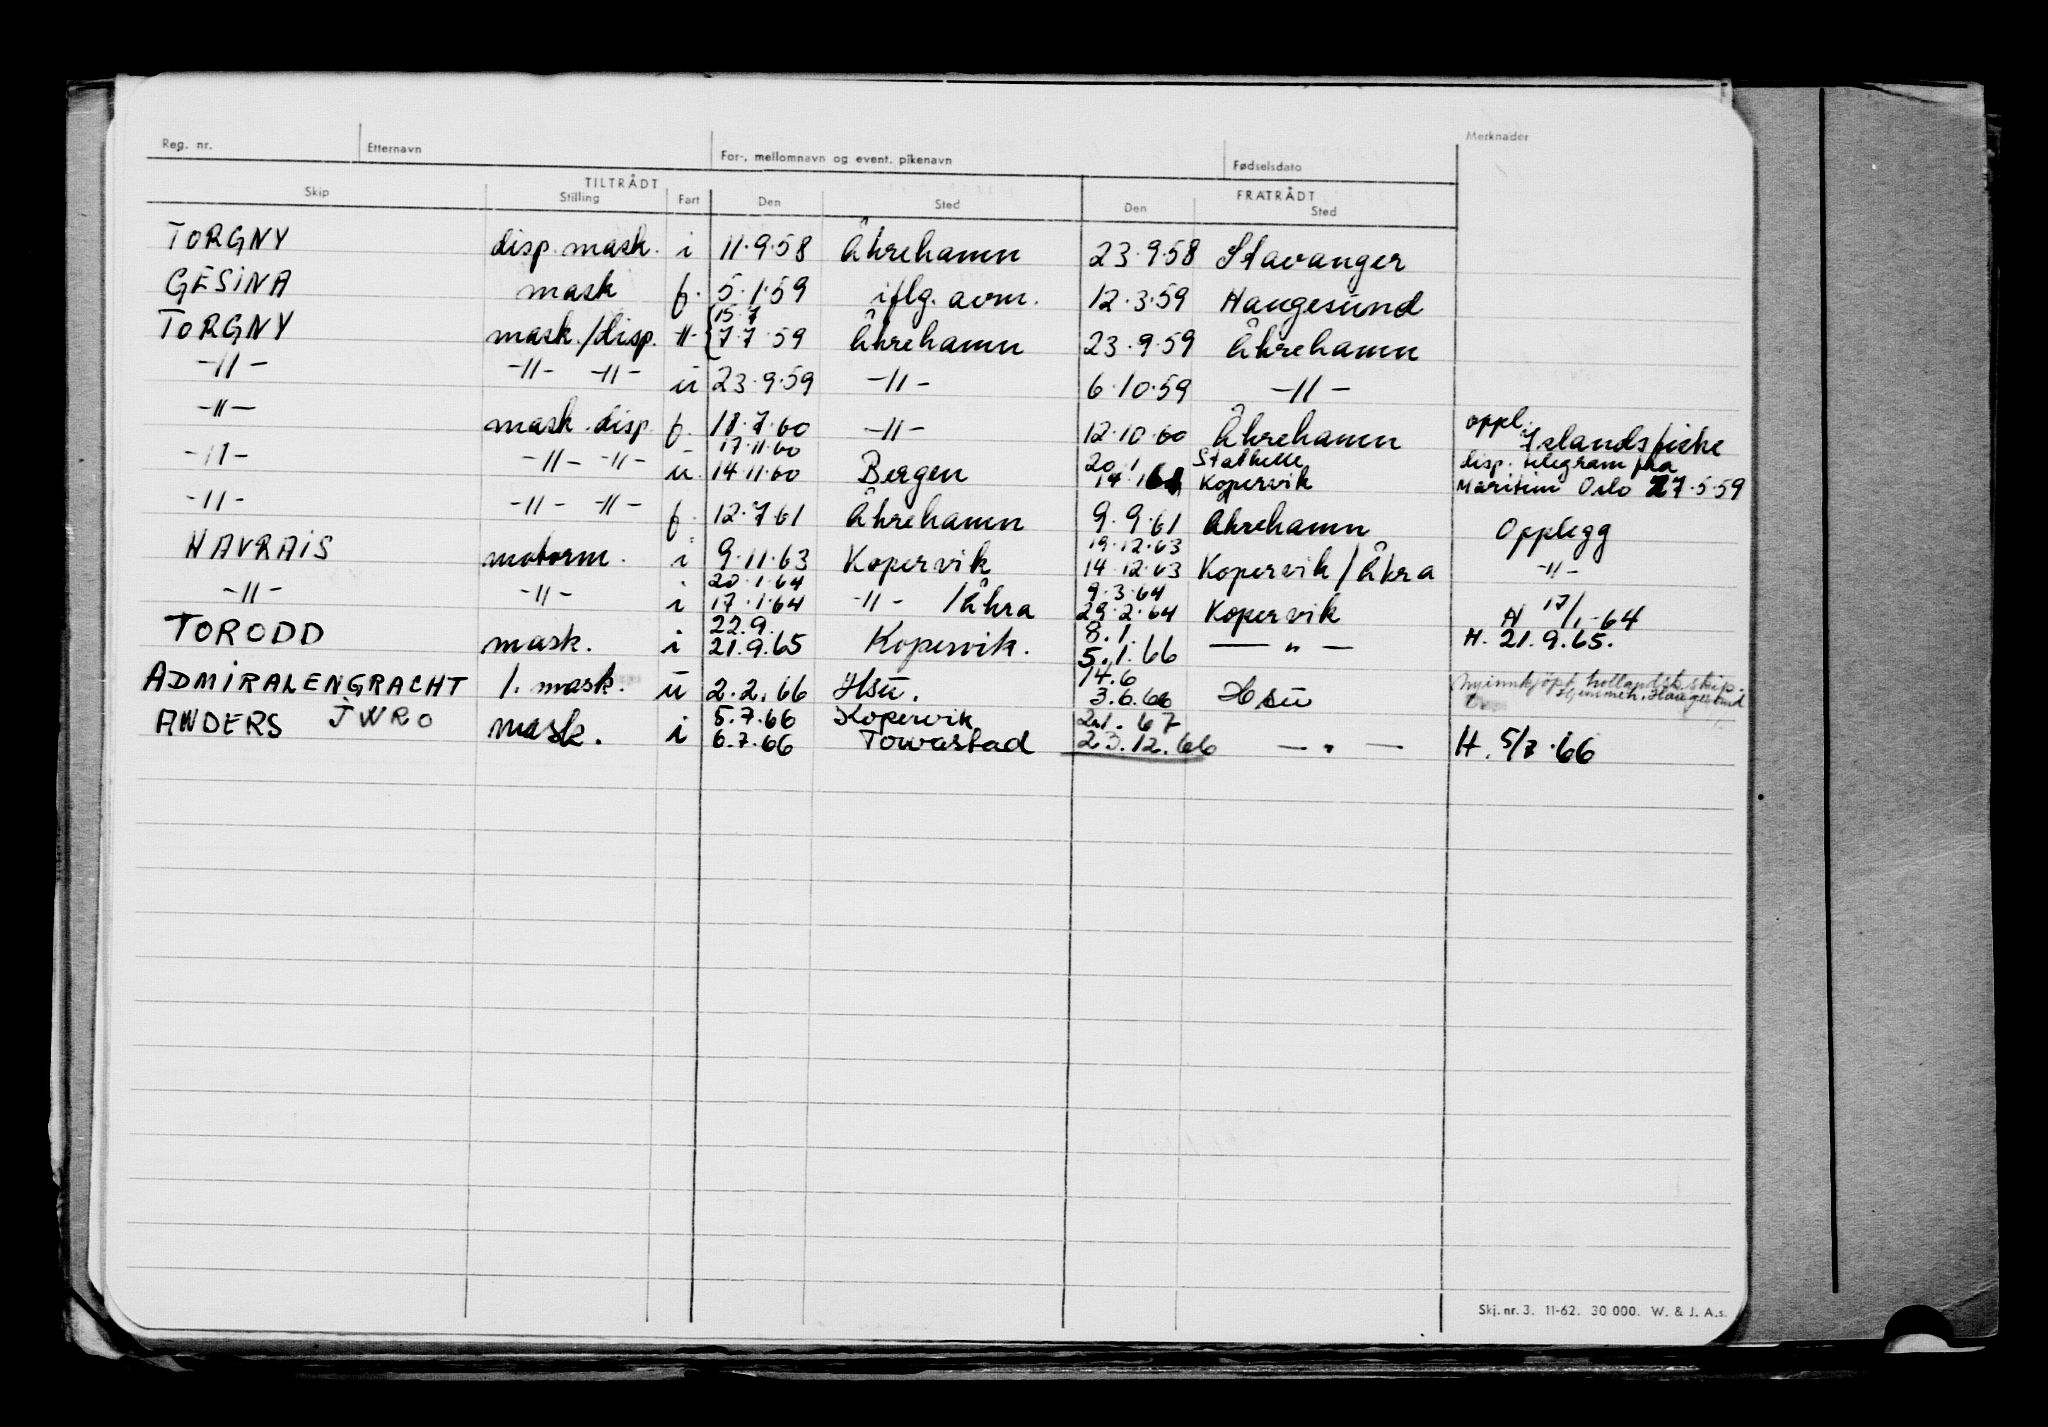 Reg. nr. Etternavn For-, mellomnavn og event. pikenavn Fødselsdato Merknader
TILTRÅDT FRATRÅDT
Skip Stilling Fart Den Sted Den Sted
TORGNY disp. mask. i 11.9.58 Åkrehamn 23.9.58 Stavanger
GESINA mask f. 5.1.59 iflg. avm. 12.3.59 Haugesund
15.7
TORGNY mask./disp. -"- 7.7.59 Åkrehamn 23.9.59 Åkrehamn
-"- -"- -"- u 23.9.59 -"- 6.10.59 -"-
-"- mask. disp. f. 18.7.60 -"- 12.10.60 Åkrehamn oppl. Islandsfiske
17.11.60 20.1 Stathelle disp. telegram fra
-"- -"- -"- u. 14.11.60 Bergen 14.1.61 Kopervik Maritim Oslo 27.5.59
-"- -"- -"- f. 12.7.61 Åkrehamn 9.9.61 Åkrehamn Opplegg
19.12.63
HAVRAIS motorm. i 9.11.63 Kopervik 14.12.63 Kopervik/Åkra -"-
20.1.64 9.3.64
-"- -"- i 17.1.64 -"- /Åkra 29.2.64 Kopervik H 17/1-64
22.9. 8.1.
TORODD mask. i 21.9.65 Kopervik. 5.1.66 — " — H. 21.9.65.
14.6 hollandsk skip.
ADMIRALENGRACHT 1. mask. u 2.2.66 Hsu. 3.6.66 Hsu Haugesund
5.7.66 Kopervik 2.1.67
ANDERS JWRO mask. i 6.7.66 23.12.66 — " — H. 5/7.66
Skj. nr. 3. 11-62. 30 000. W. & J. A.s.